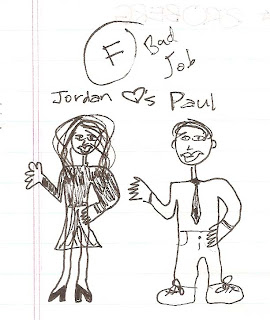 F Bad
Job
Jordan ♡s Paul